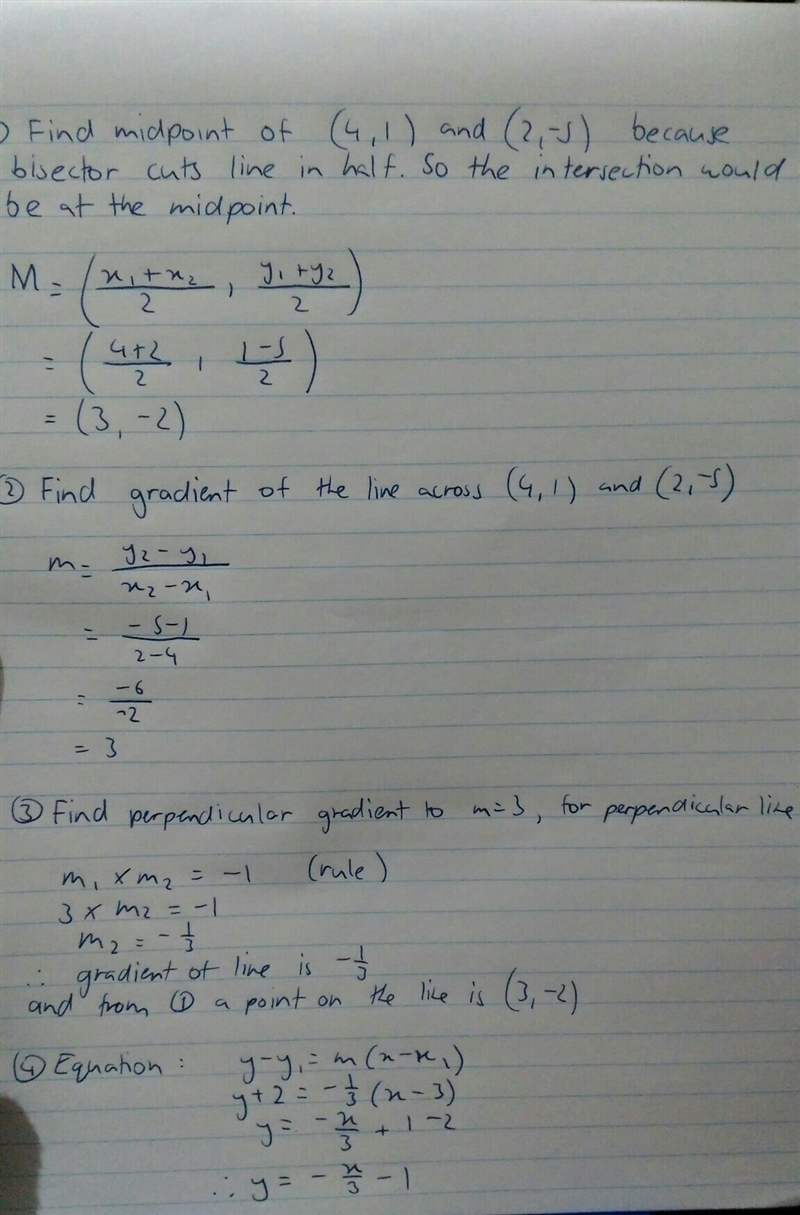 ) Find midpoint of (4,1) and (2,-5) because
bisector cuts line in half. So the intersection would
be at the midpoint.
M = ( (x₁+x₂)/2 , (y₁+y₂)/2 )
= ( (4+2)/2 , (1-5)/2 )
= (3, -2)
② Find gradient of the line across (4,1) and (2,-5)
m = (y₂-y₁)/(x₂-x₁)
= (-5-1)/(2-4)
= -6/-2
= 3
③ Find perpendicular gradient to m=3, for perpendicular line
m₁ × m₂ = -1 (rule)
3 × m₂ = -1
m₂ = -1/3
∴ gradient of line is -1/3
and from ① a point on the line is (3,-2)
④ Equation: y-y₁ = m(x-x₁)
y+2 = -1/3 (x-3)
y = -x/3 + 1 -2
∴ y = -x/3 - 1